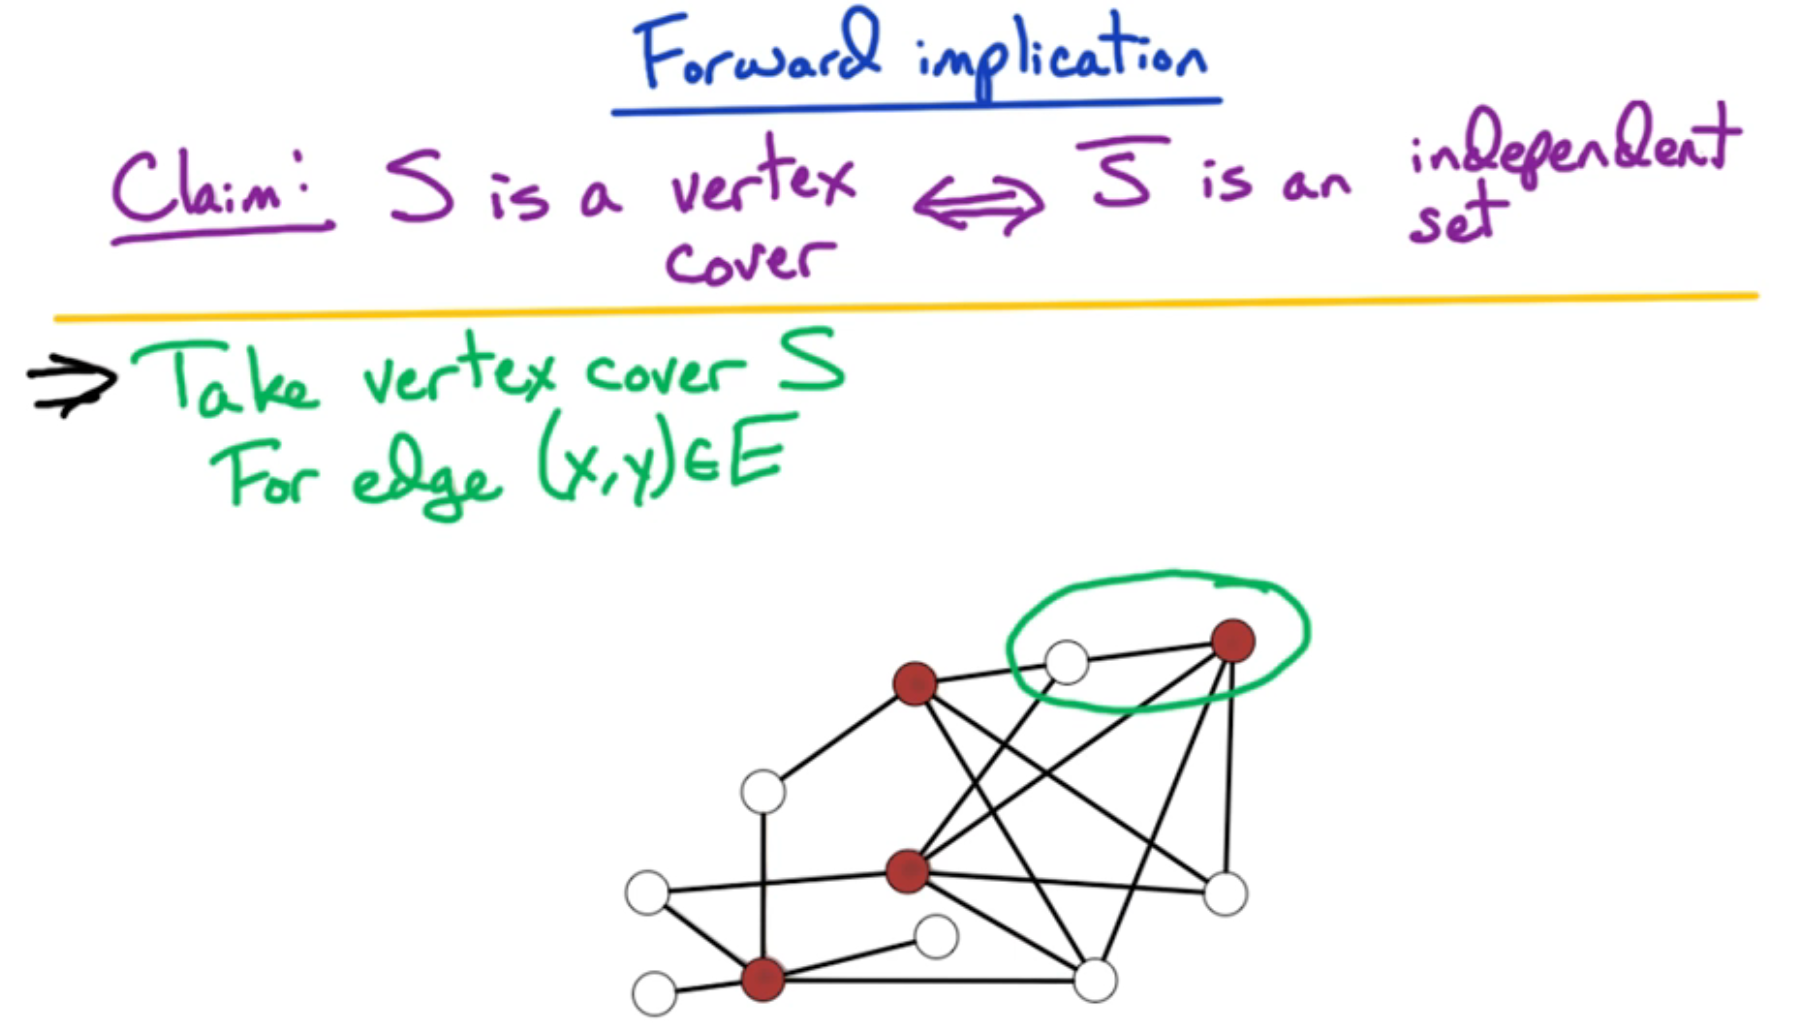 Forward implication
Claim: S is a vertex cover ⟺ S̅ is an independent set
⇒ Take vertex cover S
For edge (x,y)∈E